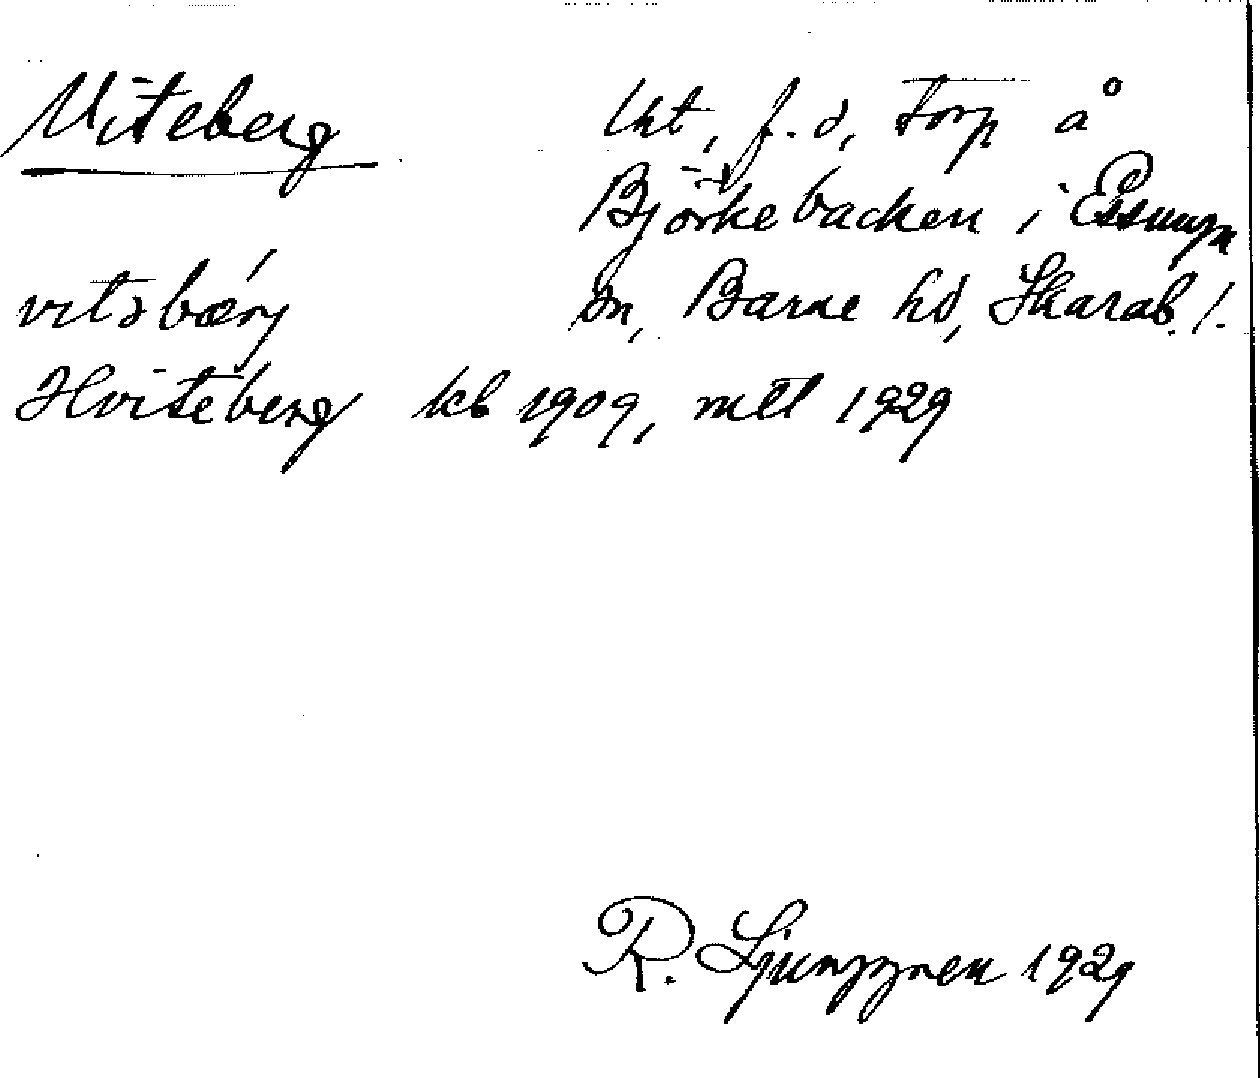 Viteberg
lht, f.d. torp å
Björkebacken i Essunga
sn, Barne hd, Skarab. l.
vitsbærj
Hviteberg kb 1909, mtl 1929
R. Ljunggren 1929